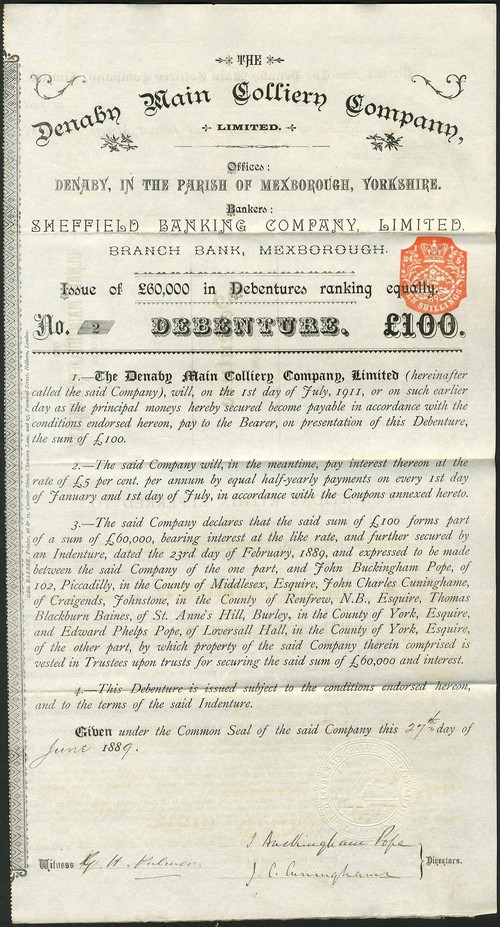 THE
Denaby Main Colliery Company,
LIMITED.
Offices:
DENABY, IN THE PARISH OF MEXBOROUGH, YORKSHIRE.
Bankers:
SHEFFIELD BANKING COMPANY, LIMITED.
BRANCH BANK, MEXBOROUGH.
Issue of £60,000 in Debentures ranking equally.
No. 2 DEBENTURE. £100.
1.—The Denaby Main Colliery Company, Limited (hereinafter
called the said Company), will, on the 1st day of July, 1911, or on such earlier
day as the principal moneys hereby secured become payable in accordance with the
conditions endorsed hereon, pay to the Bearer, on presentation of this Debenture,
the sum of £100.
2.—The said Company will, in the meantime, pay interest thereon at the
rate of £5 per cent. per annum by equal half-yearly payments on every 1st day
of January and 1st day of July, in accordance with the Coupons annexed hereto.
3.—The said Company declares that the said sum of £100 forms part
of a sum of £60,000, bearing interest at the like rate, and further secured by
an Indenture, dated the 23rd day of February, 1889, and expressed to be made
between the said Company of the one part, and John Buckingham Pope, of
102, Piccadilly, in the County of Middlesex, Esquire, John Charles Cuninghame,
of Craigends, Johnstone, in the County of Renfrew, N.B., Esquire, Thomas
Blackburn Baines, of St. Anne's Hill, Burley, in the County of York, Esquire,
and Edward Phelps Pope, of Loversall Hall, in the County of York, Esquire,
of the other part, by which property of the said Company therein comprised is
vested in Trustees upon trusts for securing the said sum of £60,000 and interest.
4.—This Debenture is issued subject to the conditions endorsed hereon,
and to the terms of the said Indenture.
Given under the Common Seal of the said Company this 27th day of
June 1889.
J Buckingham Pope
Witness
J. C. Cuninghame
Directors.